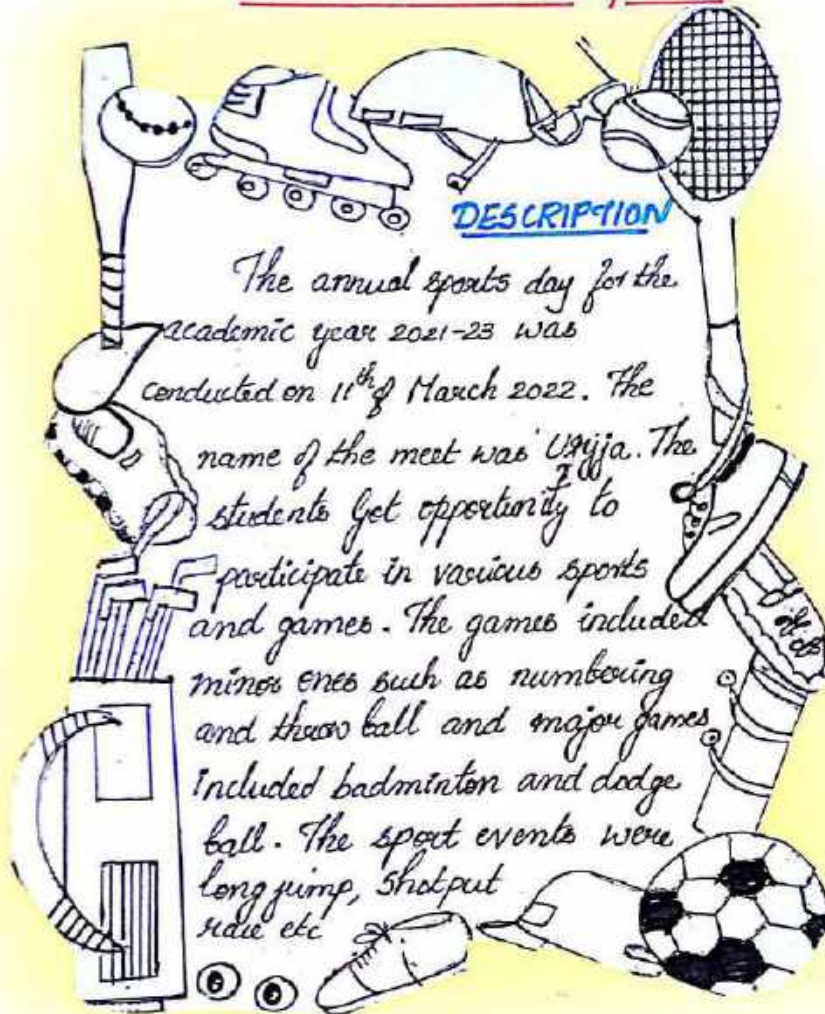 DESCRIPTION
The annual sports day for the
academic year 2021-23 was
conducted on 11th of March 2022. The
name of the meet was The
students get opportunity to
participate in various sports
and games. The games included
minor ones such as numbering
and throw ball and major games
included badminton and dodge
ball. The sport events were
long jump, shotput
race etc